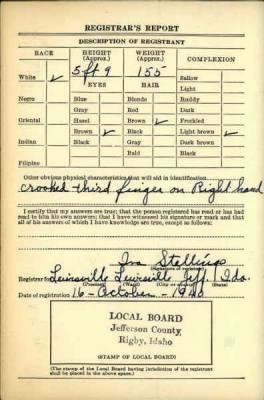 REGISTRAR'S REPORT
DESCRIPTION OF REGISTRANT
RACE HEIGHT (Approx.) WEIGHT (Approx.) COMPLEXION
5 ft 9 155
White ✓ EYES HAIR Sallow
Light
Negro Blue Blonde Ruddy
Gray Red Dark
Oriental Hazel Brown ✓ Freckled
Brown ✓ Black Light brown ✓
Indian Black Gray Dark brown
Bald Black
Filipino
Other obvious physical characteristics that will aid in identification
crooked third finger on Right hand
I certify that my answers are true; that the person registered has read or has had
read to him his own answers; that I have witnessed his signature or mark and that
all of his answers of which I have knowledge are true, except as follows:
Ira Stallings
(Signature of registrar)
Registrar for Lewisville Lewisville Jeff. Ida.
(Precinct) (Ward) (City or county) (State)
Date of registration 16 - October - 1940
LOCAL BOARD
Jefferson County
Rigby, Idaho
(STAMP OF LOCAL BOARD)
(The stamp of the Local Board having jurisdiction of the registrant
shall be placed in the above space.)